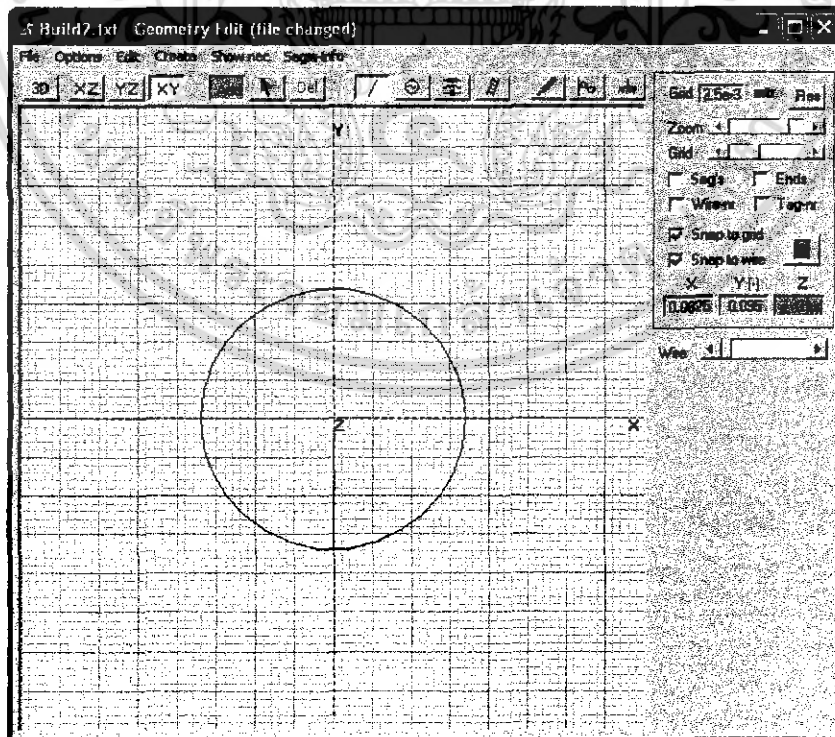 Build2.txt - Geometry Edit (file changed)
File Options Edit Create Show-nec Segm-info
3D XZ YZ XY Del
Grid 2.5e-3 mtr Res
Zoom
Grid
Seg's Ends
Wire-nr Tag-nr
Snap to grid
Snap to wire
X Y(-) Z
0.0825 0.095
Wire
Y
Z X